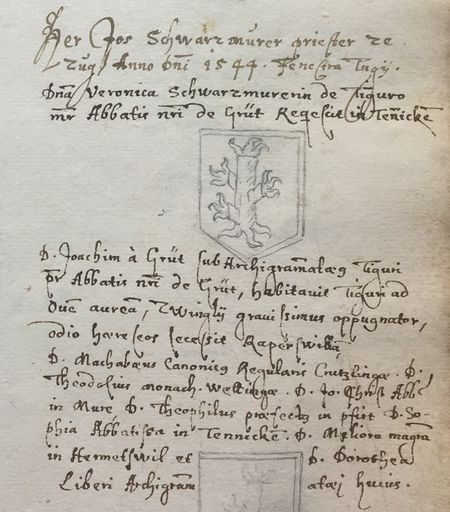 Her Jos Schwarzmurer priester ze
Zug Anno Dni 1544. Fenestra Tugij.
Dna Veronica Schwarzmurerin de Tiguro
mr Abbatis nri de Grüt Reqescit in Tennickē
D. Joachim à Grüt sub Archigramatæg Tiguri
pr Abbatis nri de Grüt, habitavit Tiguri ad
Ovem auream, Zwinglij gravissimus oppugnator,
odio hæreseos secessit Raperswillā
D. Machabæus Canonicg Regularis Crutzlingæ. D.
Theodosius monach. Wettingæ. D. Jo: Christ Abbs
in Mure D. Theophilus præfectg in pfirt D. So-
phia Abbatissa in Tennickē. D. Meliora magra
in Hermetswil et D. Dorothea
Liberi Archigram atæj huius.